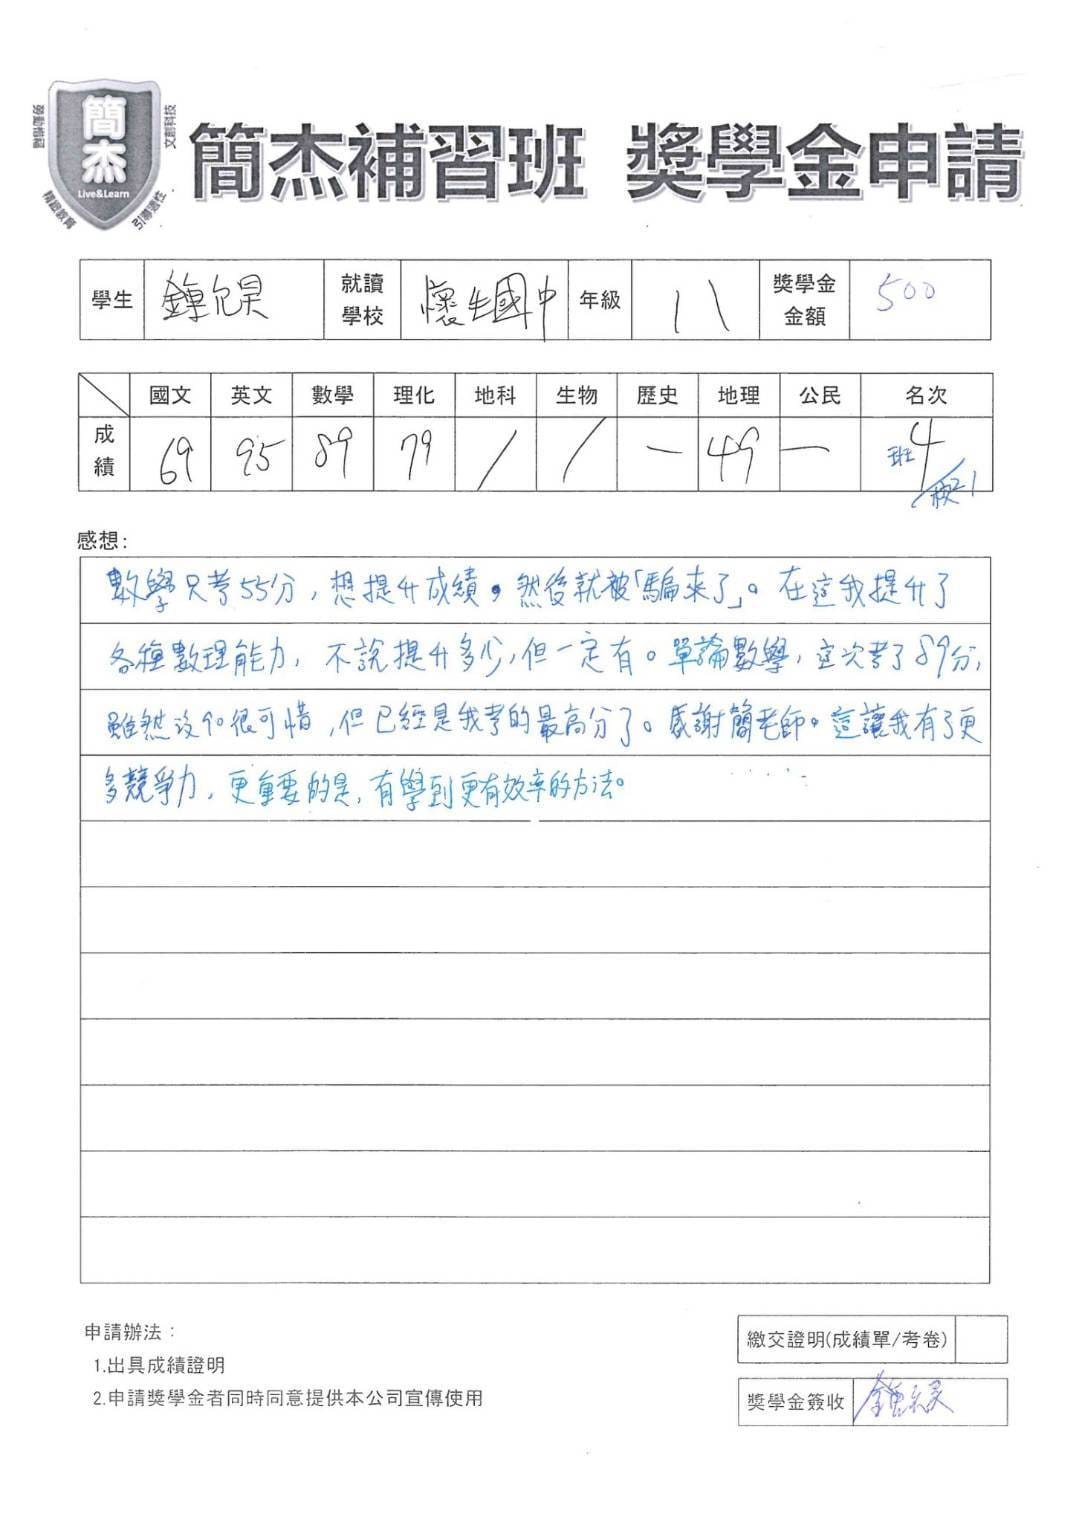 簡杰
Live&Learn
精緻教育
引導適性
文創科技
簡杰補習班 獎學金申請
學生 鍾允昊 就讀學校 懷生國中 年級 八 獎學金金額 500
國文 英文 數學 理化 地科 生物 歷史 地理 公民 名次
成績 69 95 89 79 / / — 49 — 班4/校21
感想:
數學只考55分,想提升成績。然後就被「騙來了」。在這我提升了
各種數理能力,不說提升多少,但一定有。單論數學,這次考了89分,
雖然沒90很可惜,但已經是我考的最高分了。感謝簡老師。這讓我有了更
多競爭力,更重要的是,有學到更有效率的方法。
申請辦法:
1.出具成績證明
2.申請獎學金者同時同意提供本公司宣傳使用
繳交證明(成績單/考卷)
獎學金簽收